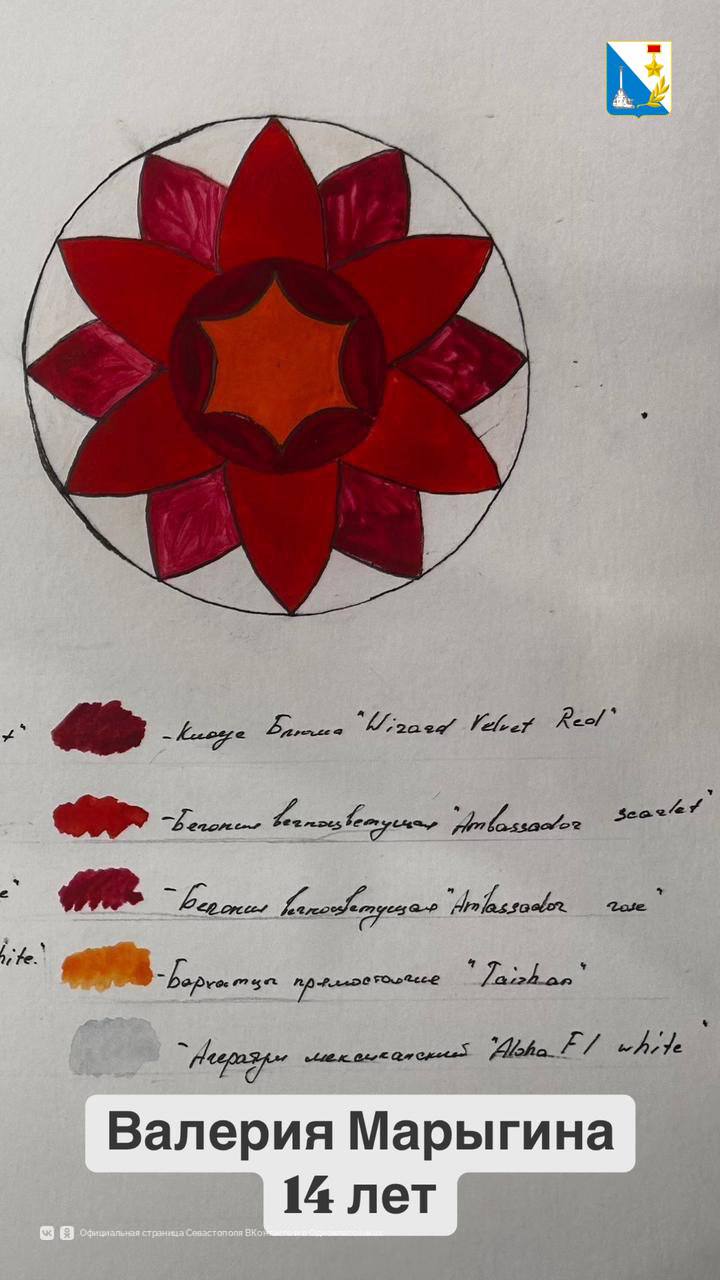 - Колеус Блюма "Wizard Velvet Red"
- Бегония вечноцветущая "Ambassador scarlet"
- Бегония вечноцветущая "Ambassador rose"
hite."
- Бархатцы прямостоячие "Taishan"
- Агератум мексиканский "Aloha F1 white"
Валерия Марыгина
14 лет
Официальная страница Севастополя ВКон